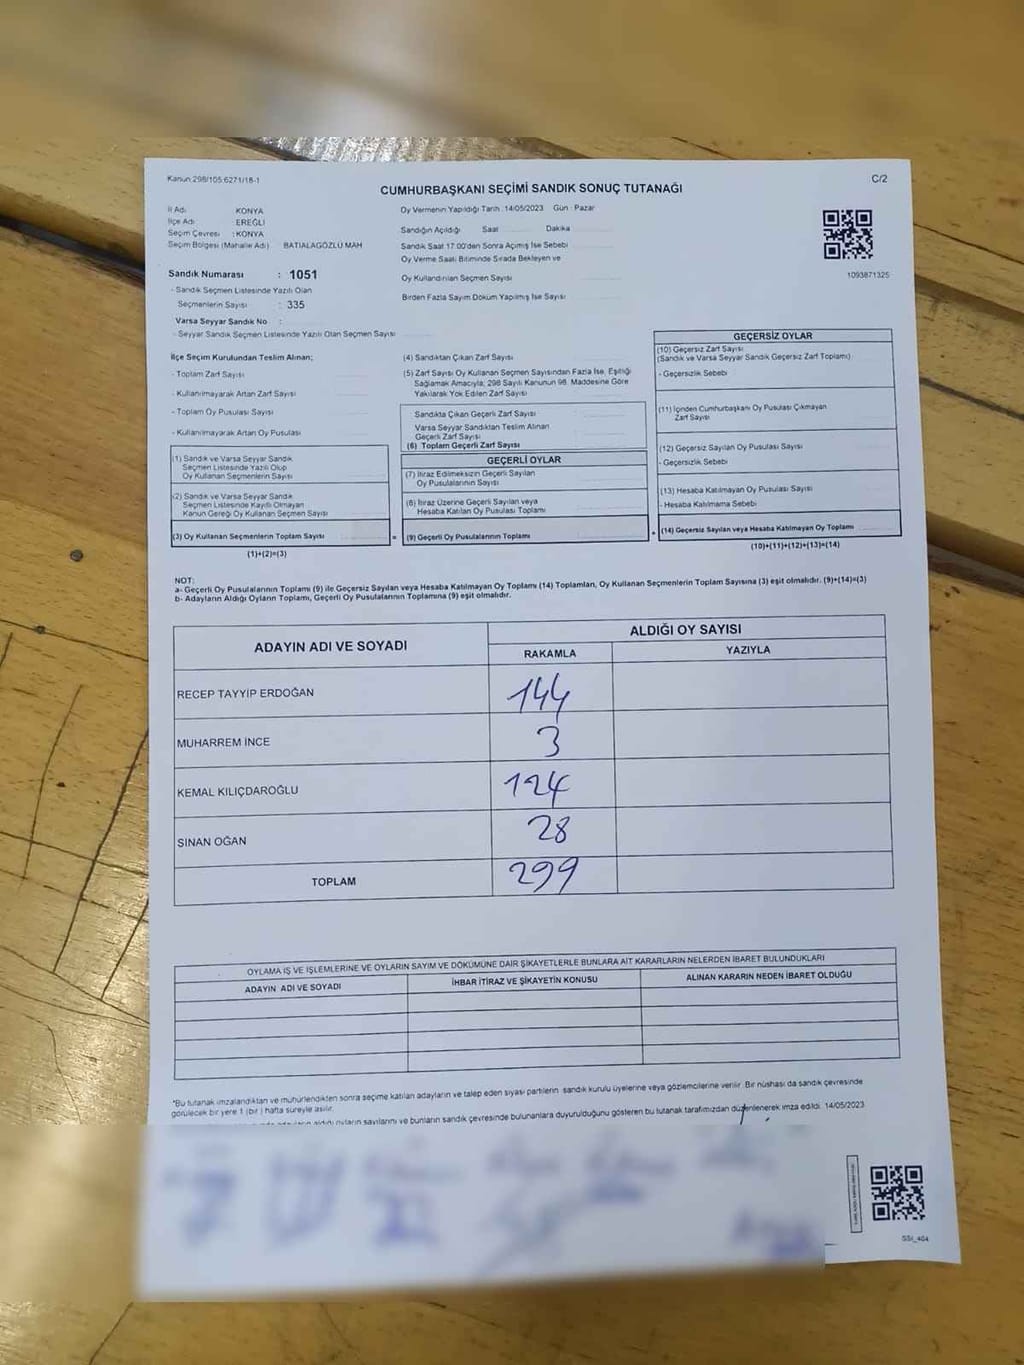 Kanun 298/105.6271/18-1
C/2
CUMHURBAŞKANI SEÇİMİ SANDIK SONUÇ TUTANAĞI
İl Adı KONYA
İlçe Adı : EREĞLİ
Seçim Çevresi : KONYA
Seçim Bölgesi (Mahalle Adı) BATIALAGÖZLÜ MAH
Sandık Numarası : 1051
- Sandık Seçmen Listesinde Yazılı Olan
Seçmenlerin Sayısı : 335
Varsa Seyyar Sandık No :
- Seyyar Sandık Seçmen Listesinde Yazılı Olan Seçmen Sayısı
Oy Vermenin Yapıldığı Tarih : 14/05/2023 Gün : Pazar
Sandığın Açıldığı Saat Dakika
Sandık Saat 17:00'den Sonra Açımış İse Sebebi
Oy Verme Saati Bitiminde Sırada Bekleyen ve
Oy Kullandırılan Seçmen Sayısı
Birden Fazla Sayım Döküm Yapılmış İse Sayısı
1093871325
İlçe Seçim Kurulundan Teslim Alınan;
- Toplam Zarf Sayısı
- Kullanılmayarak Artan Zarf Sayısı
- Toplam Oy Pusulası Sayısı
- Kullanılmayarak Artan Oy Pusulası
(1) Sandık ve Varsa Seyyar Sandık
Seçmen Listesinde Yazılı Olup
Oy Kullanan Seçmenlerin Sayısı
(2) Sandık ve Varsa Seyyar Sandık
Seçmen Listesinde Kayıtlı Olmayan
Kanun Gereği Oy Kullanan Seçmen Sayısı
(3) Oy Kullanan Seçmenlerin Toplam Sayısı
(1)+(2)=(3)
(4) Sandıktan Çıkan Zarf Sayısı
(5) Zarf Sayısı Oy Kullanan Seçmen Sayısından Fazla İse, Eşitliği
Sağlamak Amacıyla; 298 Sayılı Kanunun 98. Maddesine Göre
Yakılarak Yok Edilen Zarf Sayısı
Sandıkta Çıkan Geçerli Zarf Sayısı
Varsa Seyyar Sandıktan Teslim Alınan
Geçerli Zarf Sayısı
(6) Toplam Geçerli Zarf Sayısı
GEÇERLİ OYLAR
(7) İtiraz Edilmeksizin Geçerli Sayılan
Oy Pusulalarının Sayısı
(8) İtiraz Üzerine Geçerli Sayılan veya
Hesaba Katılan Oy Pusulası Toplamı
= (9) Geçerli Oy Pusulalarının Toplamı
GEÇERSİZ OYLAR
(10) Geçersiz Zarf Sayısı
(Sandık ve Varsa Seyyar Sandık Geçersiz Zarf Toplamı)
- Geçersizlik Sebebi
(11) İçinden Cumhurbaşkanı Oy Pusulası Çıkmayan
Zarf Sayısı
(12) Geçersiz Sayılan Oy Pusulası Sayısı
- Geçersizlik Sebebi
(13) Hesaba Katılmayan Oy Pusulası Sayısı
- Hesaba Katılmama Sebebi
+ (14) Geçersiz Sayılan veya Hesaba Katılmayan Oy Toplamı
(10)+(11)+(12)+(13)=(14)
NOT:
a- Geçerli Oy Pusulalarının Toplamı (9) ile Geçersiz Sayılan veya Hesaba Katılmayan Oy Toplamı (14) Toplamları, Oy Kullanan Seçmenlerin Toplam Sayısına (3) eşit olmalıdır. (9)+(14)=(3)
b- Adayların Aldığı Oyların Toplamı, Geçerli Oy Pusulalarının Toplamına (9) eşit olmalıdır.
ADAYIN ADI VE SOYADI ALDIĞI OY SAYISI
RAKAMLA YAZIYLA
RECEP TAYYİP ERDOĞAN 144
MUHARREM İNCE 3
KEMAL KILIÇDAROĞLU 124
SİNAN OĞAN 28
TOPLAM 299
OYLAMA İŞ VE İŞLEMLERİNE VE OYLARIN SAYIM VE DÖKÜMÜNE DAİR ŞİKAYETLERLE BUNLARA AİT KARARLARIN NELERDEN İBARET BULUNDUKLARI
ADAYIN ADI VE SOYADI İHBAR İTİRAZ VE ŞİKAYETİN KONUSU ALINAN KARARIN NEDEN İBARET OLDUĞU
*Bu tutanak imzalandıktan ve mühürlendikten sonra seçime katılan adayların ve talep eden siyasi partilerin sandık kurulu üyelerine veya gözlemcilerine verilir. Bir nüshası da sandık çevresinde
görülecek bir yere 1 (bir) hafta süreyle asılır.
aldığı oyların sayılarını ve bunların sandık çevresinde bulunanlara duyurulduğunu gösteren bu tutanak tarafımızdan düzenlenerek imza edildi. 14/05/2023
SSI_404